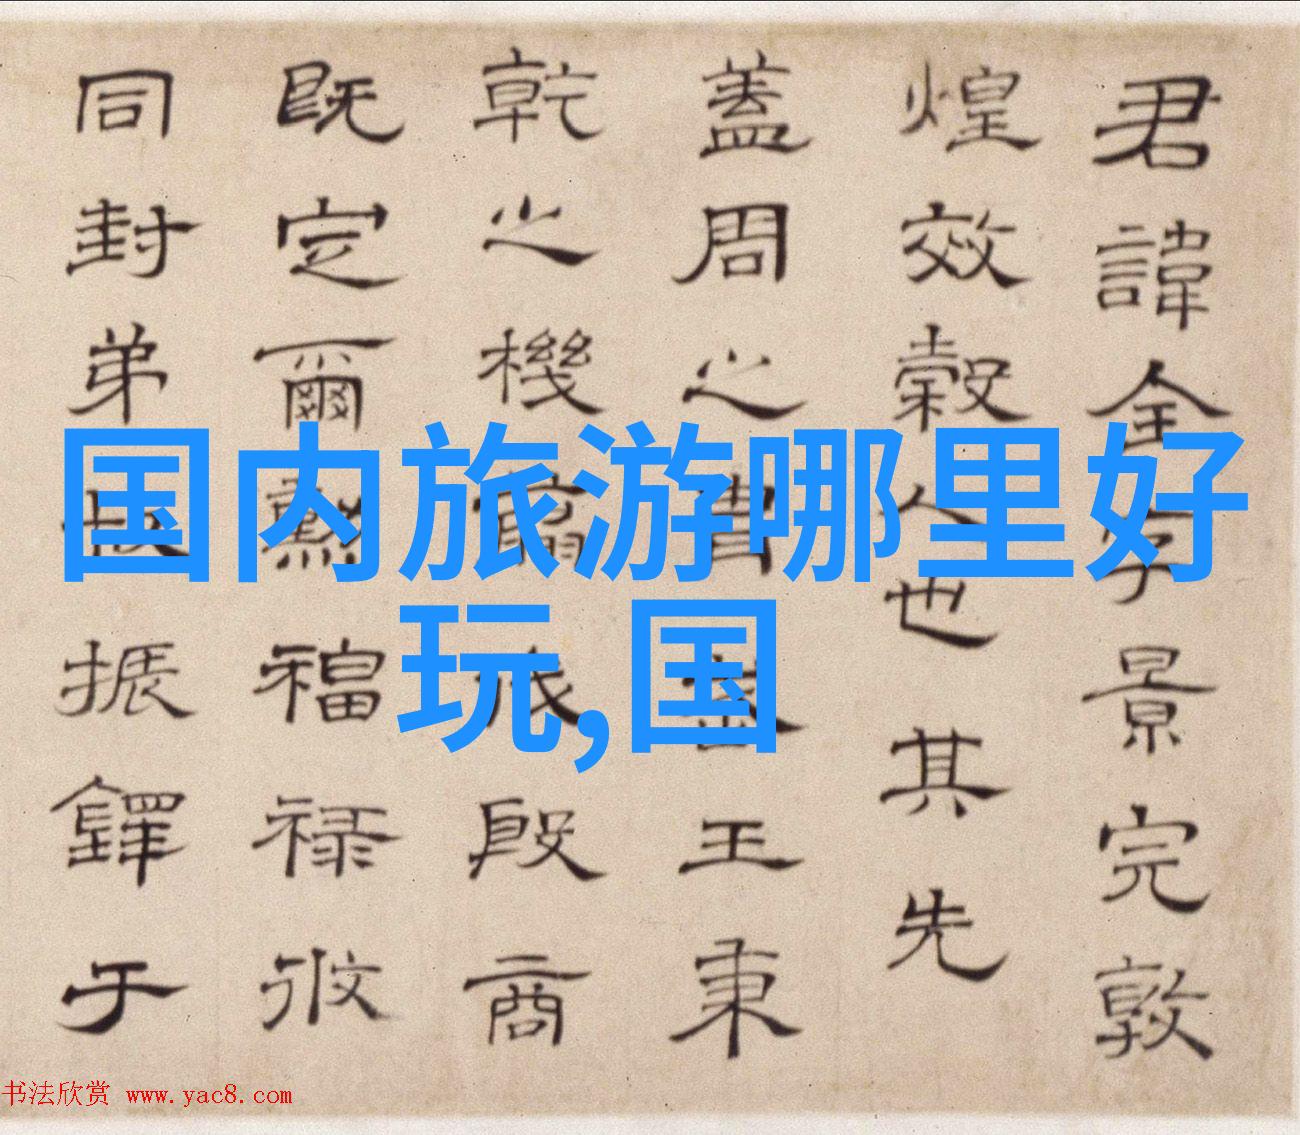 君諱全字景完敦
煌效穀人也其先
蓋周之胄武王秉
乾之機翦伐殷商
既定爾勲福禄攸
同封弟叔振鐸于
国内旅游哪里好
玩,国
书法欣赏 www.yac8.com